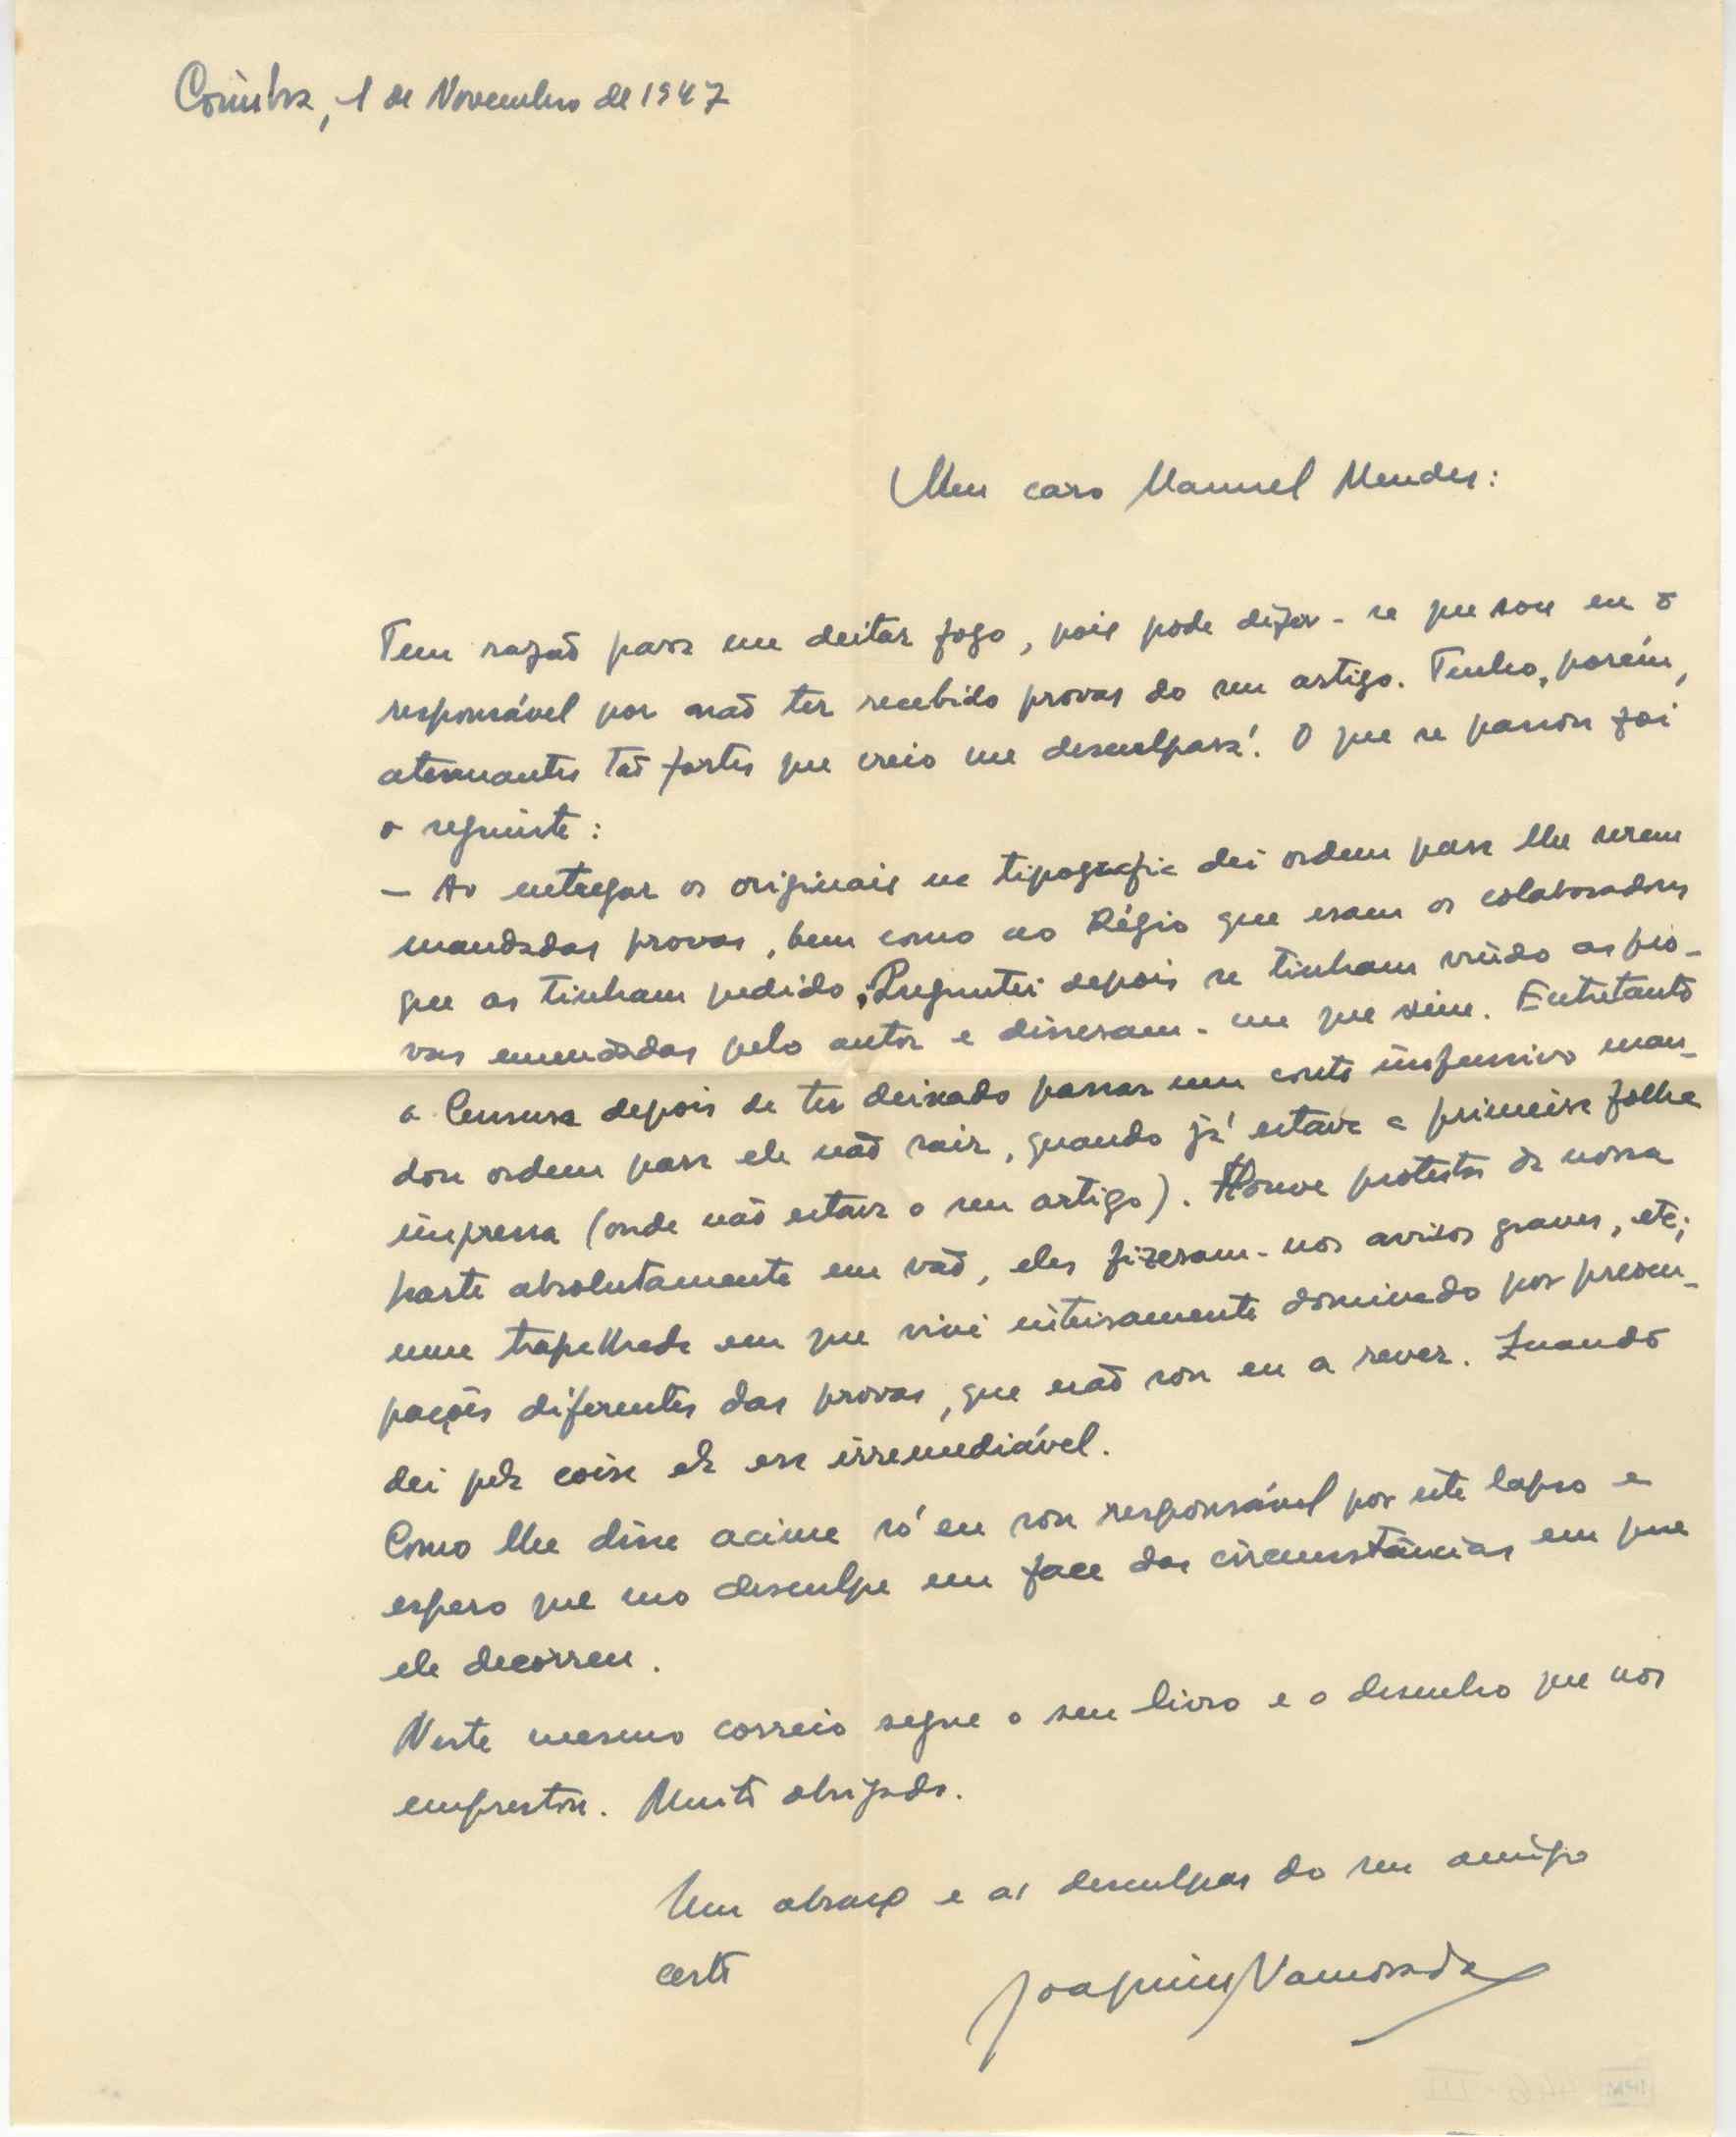 Coimbra, 1 de Novembro de 1947
Meu caro Manuel Mendes:
Tem razão para me deitar fogo, pois pode dizer-se que sou eu o
responsável por não ter recebido provas do seu artigo. Tenho, porém,
atenuantes tão fortes que creio me desculpará. O que se passou foi
o seguinte:
— Ao entregar os originais na tipografia dei ordem para lhe serem
mandadas provas, bem como ao Régio que eram os colaboradores
que as tinham pedido. Preguntei depois se tinham vindo as pro-
vas emendadas pelo autor e disseram-me que sim. Entretanto
a Censura depois de ter deixado passar um conto inofensivo man-
dou ordem para ele não sair, quando já estava a primeira folha
impressa (onde não estava o seu artigo). Houve protestos da nossa
parte absolutamente em vão, eles fizeram-nos avisos graves, etc;
uma trapalhada em que vivi inteiramente dominado por preocu-
pações diferentes das provas, que não sou eu a rever. Quando
dei pela coisa ela era irremediável.
Como lhe disse acima só eu sou responsável por este lapso e
espero que mo desculpe em face das circunstâncias em que
ele decorreu.
Neste mesmo correio segue o seu livro e o desenho que nos
emprestou. Muito obrigado.
Um abraço e as desculpas do seu amigo
certo
Joaquim Namorado